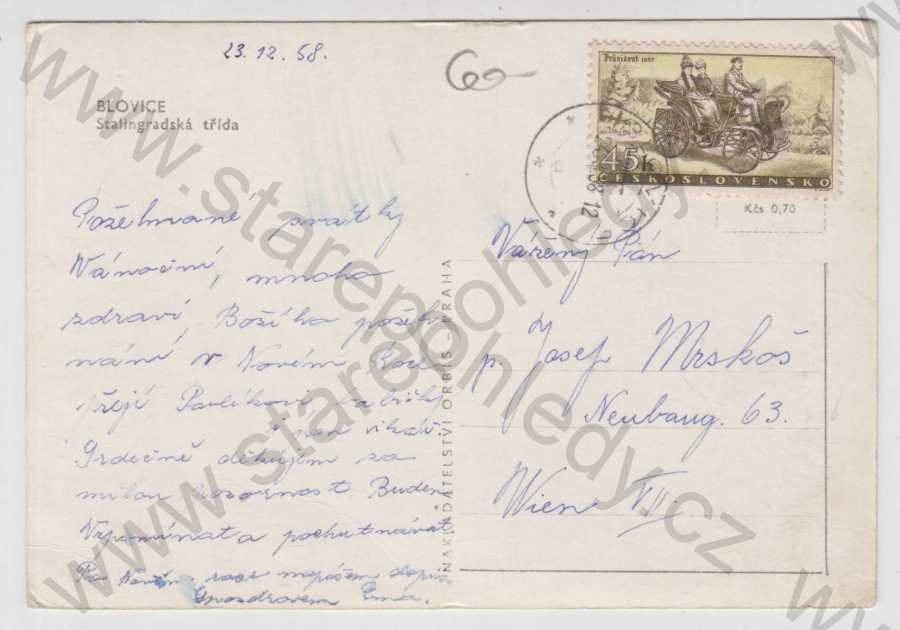 23.12.58.
60-
BLOVICE
Stalingradská třída
President 1897
45h
ČESKOSLOVENSKO
Kčs 0,70
Požehnané svátky
Vánoční, mnoho
zdraví, Božího požeh
nání v Novém Roce
přejí Pavlíkovi, babičky
Srdečně děkujem za
milou pozornost. Budem
Vzpomínat a pochutnávat
Po Novém roce napíšem dopis.
S pozdravem Ema.
NAKLADATELSTVÍ ORBIS - PRAHA
Vážený Pán
p. Josef Mrskoš
Neubaug. 63.
Wien VII.
www.starepohledy.cz